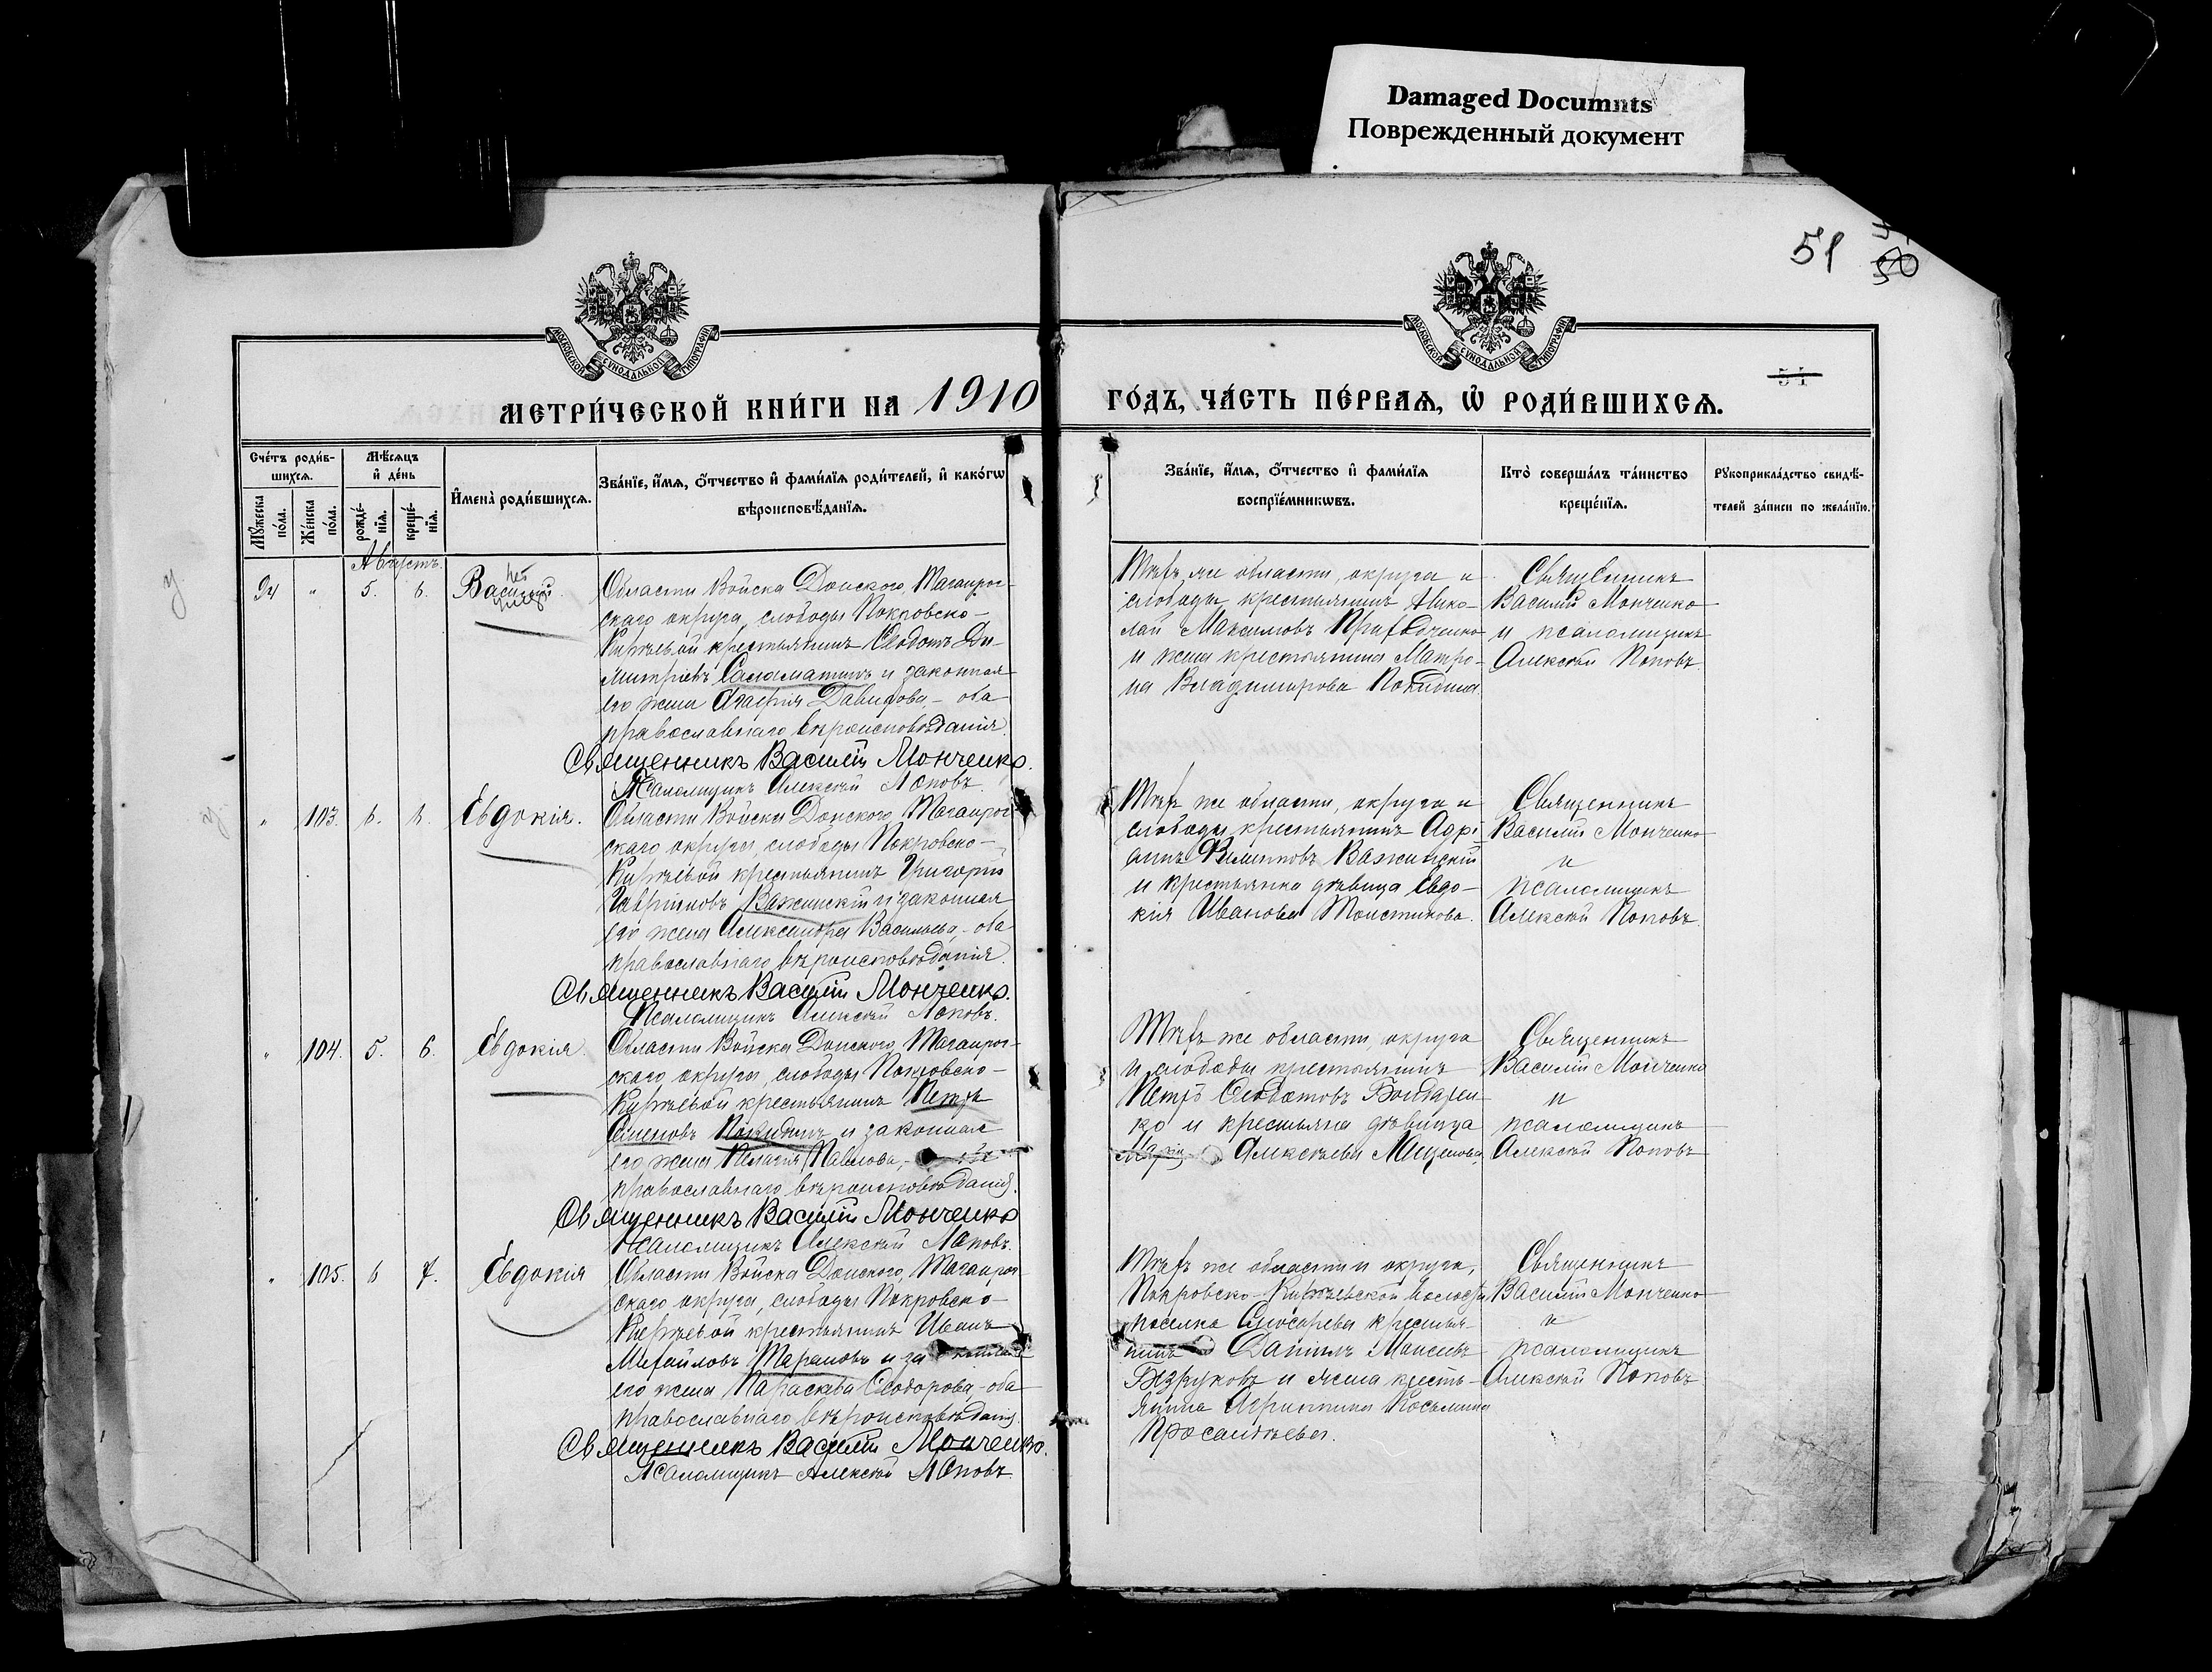 Damaged Documnts
Поврежденный документ
51
МЕТРИ́ЧЕСКОЙ КНИ́ГИ НА 1910
ГО́ДЪ, ЧА́СТЬ ПЕ́РВАѦ, Ѽ РОДИ́ВШИХСѦ.
МОСКОВСКОЙ СѴНОДАЛЬНОЙ ТИПОГРАФІИ
МОСКОВСКОЙ СѴНОДАЛЬНОЙ ТИПОГРАФІИ
51
Сче́тъ роди́в-
шихсѧ.
Мꙋ́жеска по́ла.
Же́нска по́ла.
Мѣ́сѧцъ
и҆ де́нь
рожде́-
нїѧ.
креще́-
нїѧ.
И҆мена̀ роди́вшихсѧ.
Зва́нїе, и҆́мѧ, ѻ҆́тчество и҆ фами́лїѧ роди́телей, и҆ како́гѡ
вѣроисповѣ́данїѧ.
Зва́нїе, и҆́мѧ, ѻ҆́тчество и҆ фами́лїѧ
воспрїе́мникѡвъ.
Кто̀ соверша́лъ та́инство
креще́нїѧ.
Рꙋкоприкла́дство свидѣ́-
телей за́писи по жела́нїю.
Августъ.
94 " 5. 6. Василій.
Области Войска Донского, Таганрог-
скаго округа, слободы Покровско-
Кирѣевой крестьянинъ Ѳеодотъ Ди-
митріевъ Саламатинъ и законная
его жена Агафія Давидова, - оба
православнаго вѣроисповѣданія.
Священникъ Василій Монченко.
Псаломщикъ Алексѣй Поповъ.
Тѣхъ же области, округа и
слободы крестьянинъ Нико-
лай Максимовъ Приходченко
и жена крестьянина Матро-
на Владимірова Покидина
Священникъ
Василій Мончекко
и псаломщикъ
Алексѣй Поповъ
" 103. 6. 8. Евдокія.
Области Войска Донского, Таганрог-
скаго округа, слободы Покровско-
Кирѣевой крестьянинъ Григорій
Гавриловъ Важинскій и законная
его жена Александра Васильева, - оба
православнаго вѣроисповѣданія.
Священникъ Василій Мончекко.
Псаломщикъ Алексѣй Поповъ.
Тѣхъ же области, округа и
слободы крестьянинъ Адрі-
анъ Филиповъ Важинскій
и крестьянка дѣвица Евдо-
кія Иванова Толстикова.
Священникъ
Василій Мончекко
и
псаломщикъ
Алексѣй Поповъ
" 104. 5. 6. Евдокія.
Области Войска Донского, Таганрог-
скаго округа, слободы Покровско-
Кирѣевой крестьянинъ Петръ
Семеновъ Покидинъ и законная
его жена Пелагія Павлова, - оба
православнаго вѣроисповѣданія.
Священникъ Василій Мончекко
Псаломщикъ Алексѣй Поповъ.
Тѣхъ же области, округа
и слободы крестьянинъ
Петръ Ѳеодотовъ Бондарен-
ко и крестьяна дѣвица
Марія Алексѣева
Священникъ
Василій Мончекко
и
псаломщикъ
Алексѣй Поповъ
" 105. 6 7. Евдокія
Области Войска Донского, Таганрог-
скаго округа, слободы Покровско-
Кирѣевой крестьянинъ Иванъ
Михайловъ Тарановъ и законная
его жена Параскева Ѳеодорова, - оба
православнаго вѣроисповѣданія.
Священникъ Василій Мончекко.
Псаломщикъ Алексѣй Поповъ
Тѣхъ же области и округа,
Покровско-Кирѣевской волости
поселка Слюсарева крестья-
нинъ Даніилъ Моисеевъ
Безруковъ и жена кресть-
янина Агриппина Косьмина
Священникъ
Василій Мончекко
и
псаломщикъ
Алексѣй Поповъ